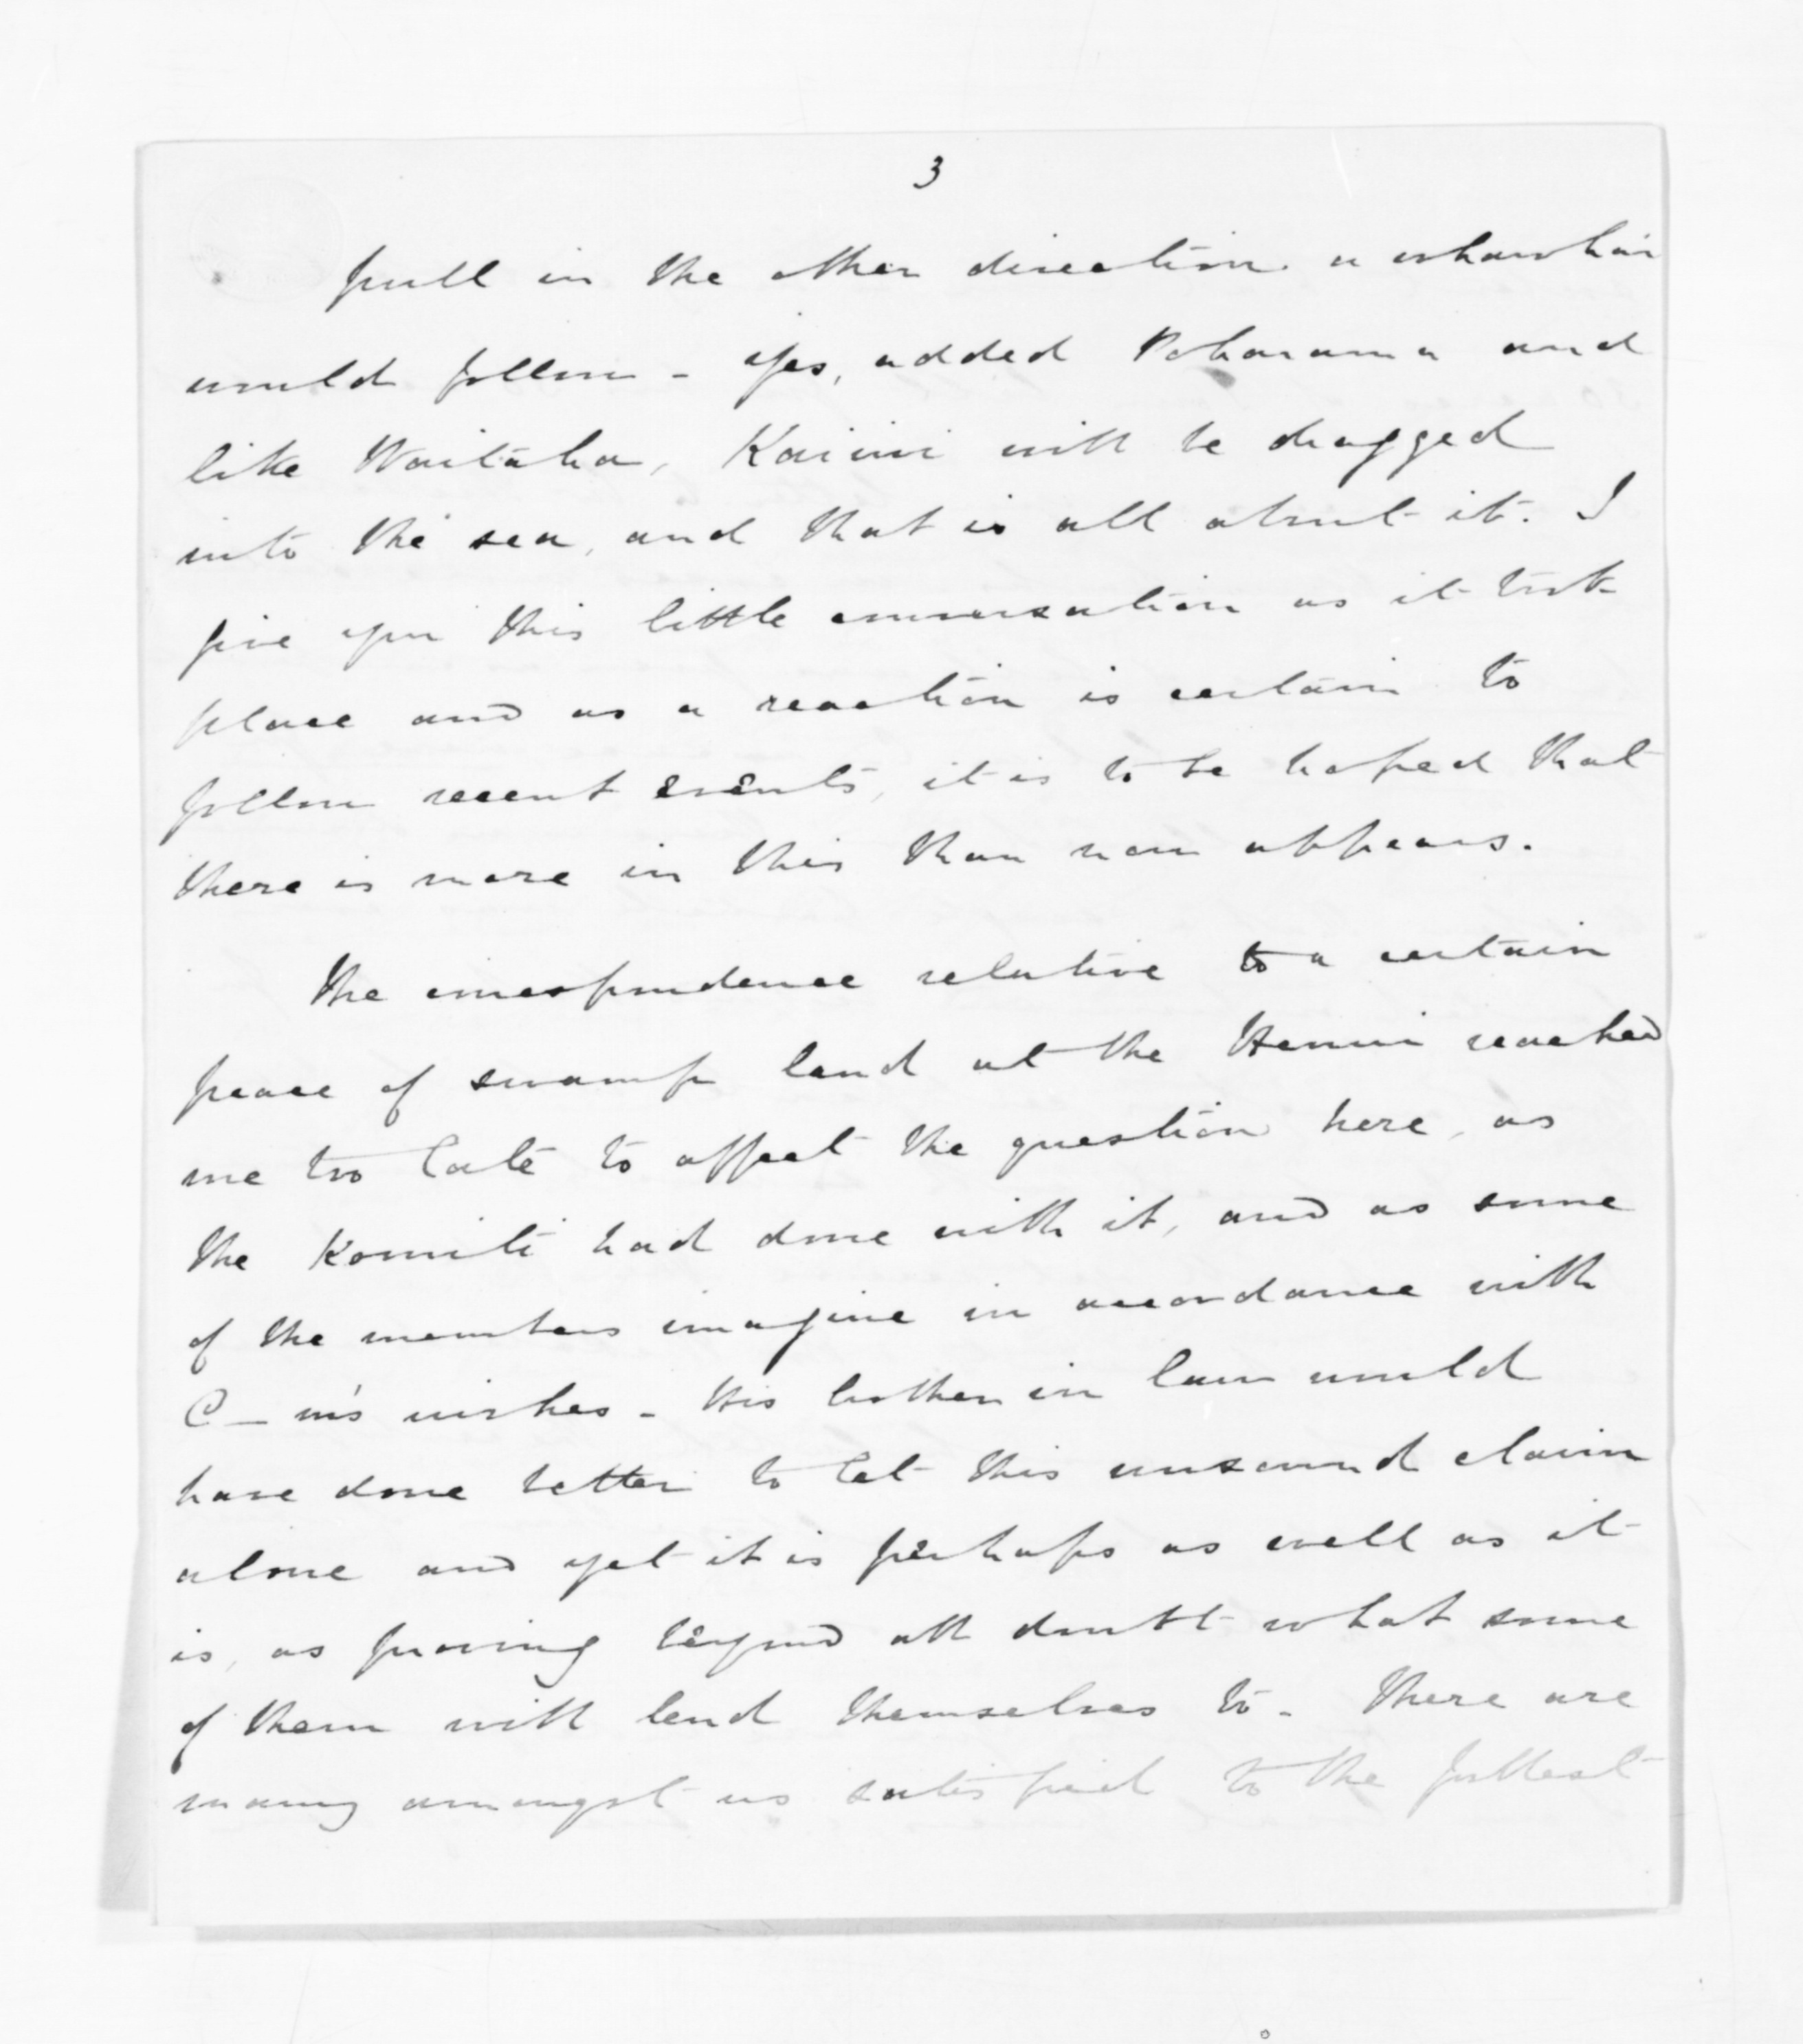 3
pull in the other direction a whawhai
would follow - Yes, added Poharama and
like Waitaha, Kaiiwi will be dragged
into the sea, and that is all about it. I
give you this little conversation as it took
place and as a reaction is certain to
follow recent events, it is to be hoped that
there is more in this than now appears.
The correspondence relative to a certain
peace of swamp land at the Henui reached
me too late to affect the question here, as
the Komiti had done with it, and as some
of the members imagine in accordance with
C - m's wishes - His brother in law would
have done better to let this unsound claim
alone and yet it is perhaps as well as it
is, as proving beyond all doubt what some
of them will lend themselves to - There are
many amongst us satisfied to the fullest